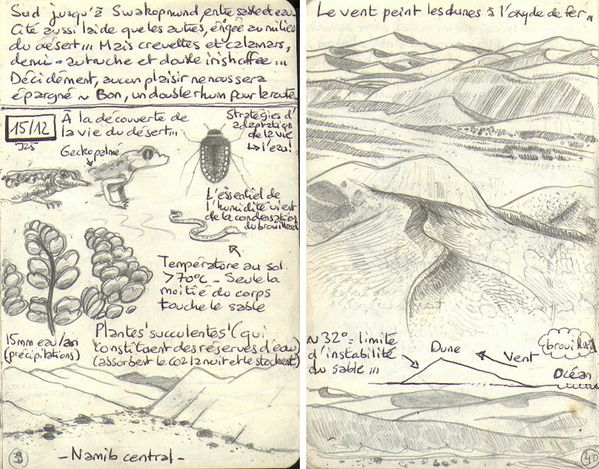 Sud jusqu'à Swakopmund, entre sable et eau.
Cité aussi laide que les autres, érigée au milieu
du désert... Mais crevettes et calamars,
demi-autruche et double irish coffee...
Décidément, aucun plaisir ne nous sera
épargné ~ Bon, un double rhum pour la route
15/12
J25
À la découverte de
la vie du désert...
Gecko palmé
Stratégies d'
adaptation
de la vie
à l'eau!
L'essentiel de
l'humidité vient
de la condensation
du brouillard
Température au sol
>70°C - Seule la
moitié du corps
touche le sable
15mm eau/an
(précipitations)
Plantes "succulentes" (qui
constituent des réserves d'eau)
(absorbent le CO2 la nuit et le stockent)
- Namib central -
39
Le vent peint les dunes à l'oxyde de fer...
~ 32° = limite
d'instabilité
du sable...
Dune
Vent
brouillard
Océan
40